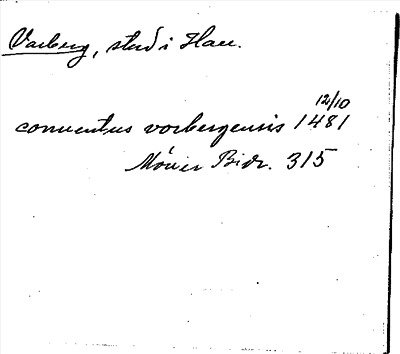 Varberg, stad i Hall.
12/10
conventus vorbergensis 1481
Mówer Bidr. 315